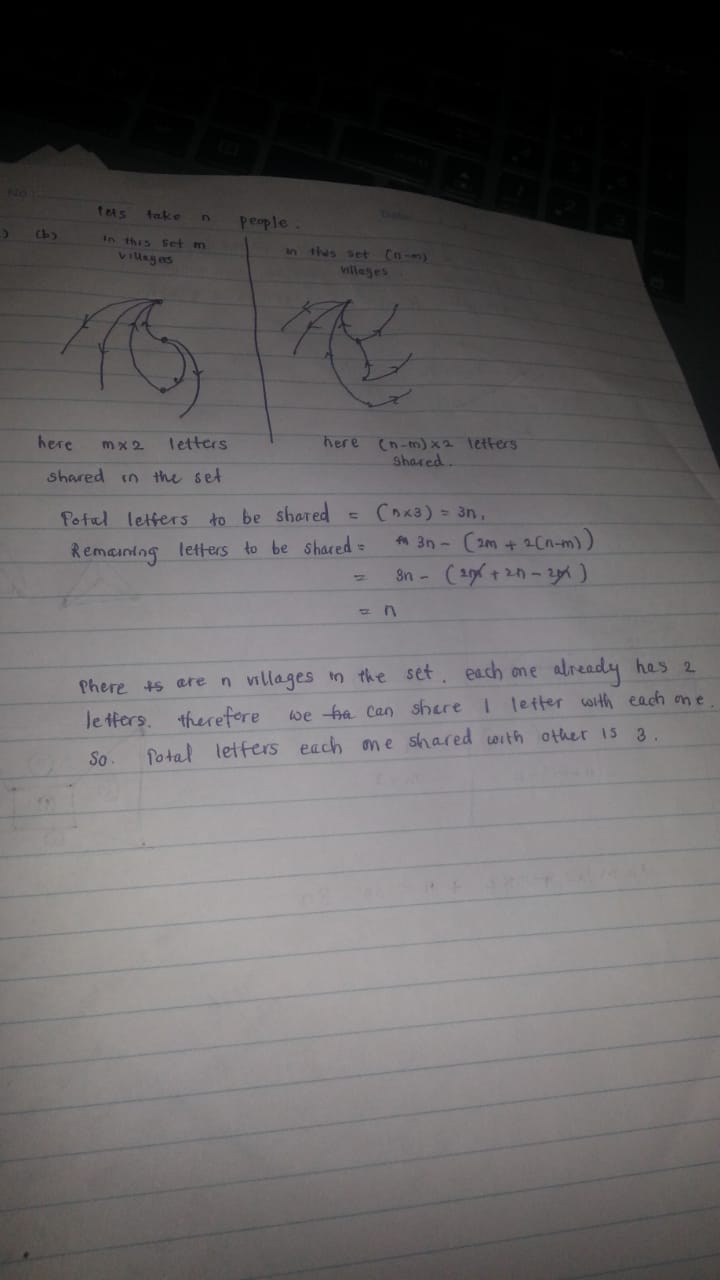 No :
Date
lets take n people.
) (b) in this set m villages
in this set (n-m) villages
here m×2 letters shared in the set
here (n-m)×2 letters shared.
Total letters to be shared = (n×3) = 3n,
Remaining letters to be shared = 3n - (2m + 2(n-m))
= 3n - (2m + 2n - 2m)
= n
There is are n villages in the set. each one already has 2
letters. therefore we ha can share 1 letter with each one.
So. Total letters each one shared with other is 3.